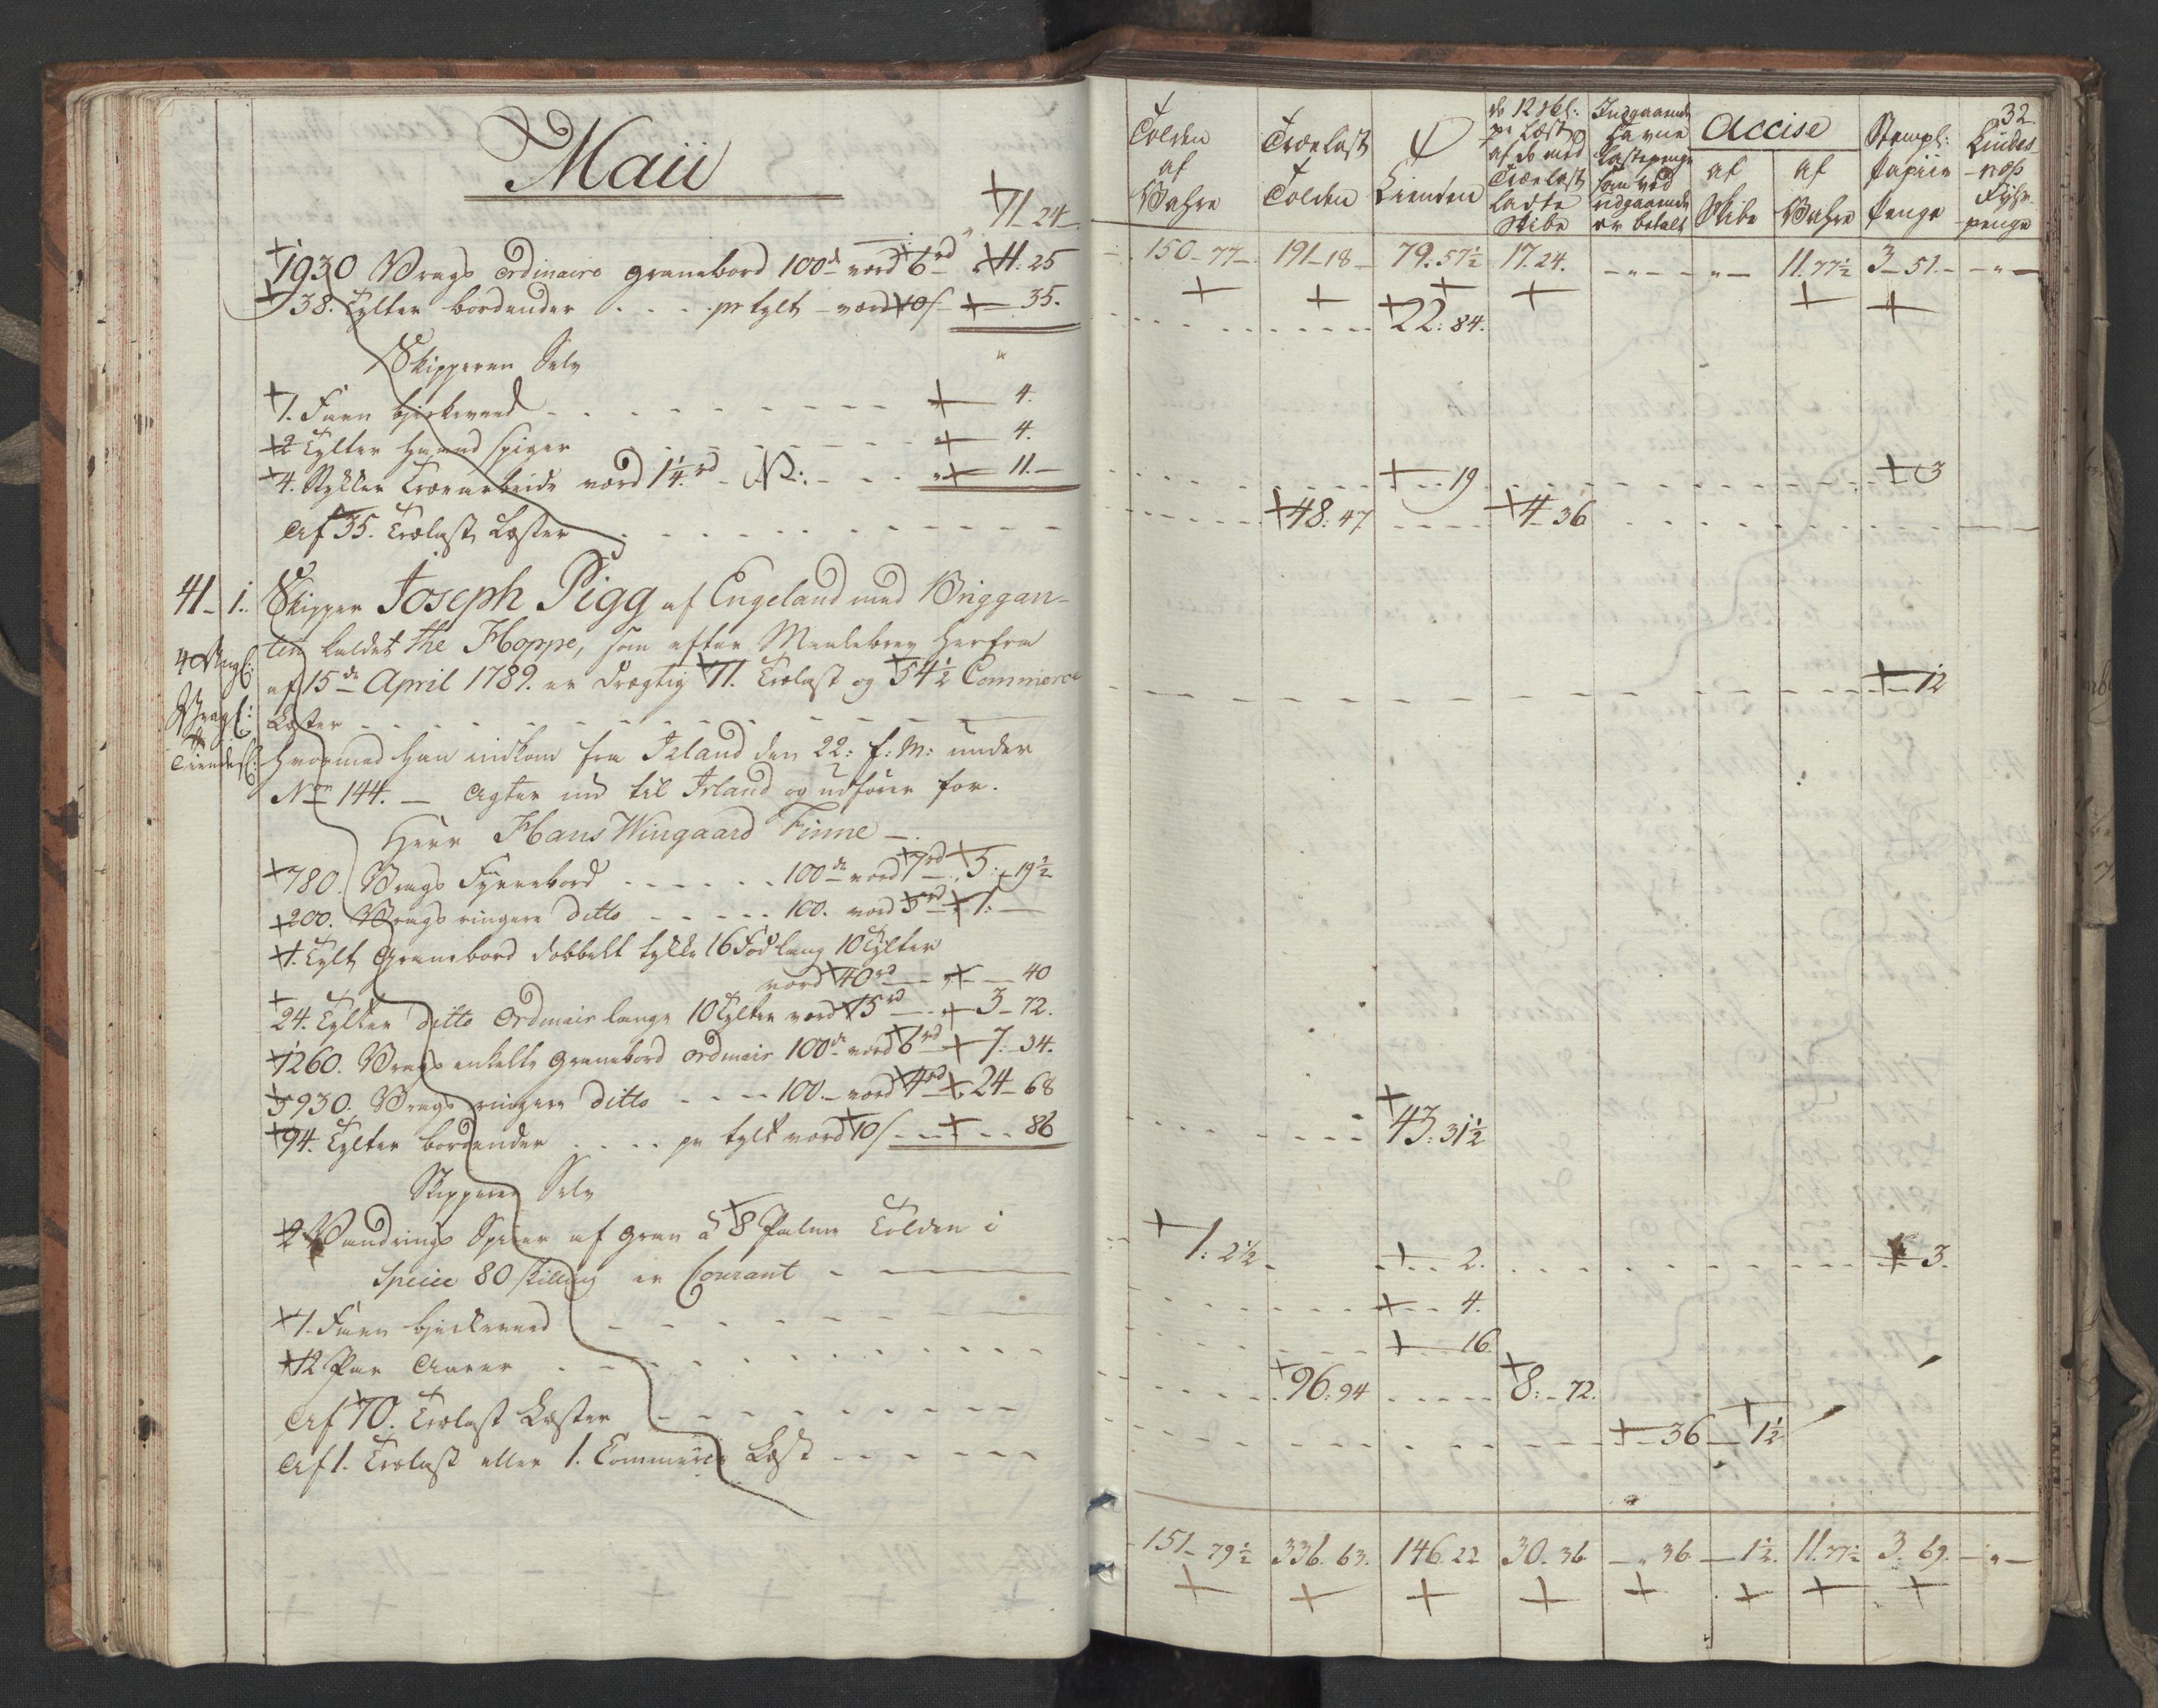 Maii
71-24
1930 Vrags ordinaire Granebord 100de værd 6rd 11:25
38. Tylter bordender pr tylt værd 10/ 35.
Skipperen Selv
1. Favn bjerkeved 4.
2 Tylter haandspiger 4.
4. Stykker Træearbeide værd 1¼rd 11.
Af 35. Trælast Læster
41-1. Skipper Joseph Pigg af Engeland med Briggan-
tin kaldet the Hoppe, som efter Maalebrev herfra
af 15de April 1789. er drægtig 71. Trælast og 54½ Commerce
Læster
hvormed han indkom fra Irland den 22: f: M: under
No 144. Agter ud til Irland og udfører for.
Herr Hans Wingaard Finne
780. Vrags Fyrrebord 100de værd 7rd 5:19½
200. Vrags ringere ditto 100. værd 5rd 1:
1. Tylt Granebord dobbelt tykke 16 Fod lang 10 Tylter
værd 40rd 40
24. Tylter ditto Ordinair lange 10 Tylter værd 15rd 3-72.
1260. Vrags enkelte Granebord ordinair 100de værd 6rd 7:34.
5930. Vrags ringere ditto 100. værd 4rd 24-68
94. Tylter bordender pr tylt værd 10/ 86
Skipperen Selv
2 Vandrings Spirer af gran a 8 Palmer Tolden i
Specie 80 skilling er Courant
1. Favn bjerkeved
12 Par Aarer
Af 70. Trælast Læster
Af 1. Trælast eller 1. Commerce Læst
32
Tolden af Vahre
Trælast Tolden
Tienden
de 12 skl: pr Læst af de med Trælast ladte Skibe
Indgaaende Lastepenge som ved udgaaende er betalt
Accise
af Skibe
af Vahre
Stempl: Papiir Penge
Lindes-næs Fyhr-penge
150-77 191-18 79.57½ 17.24. 11.77½ 3-51.
22:84.
19 3
48:47 4-36
12
43:31½
1:2½ 2. 3.
4.
16
96:94 8:72.
36 1½
151-79½ 336.63. 146.22 30-36 36 1½. 11.77½ 3.69.